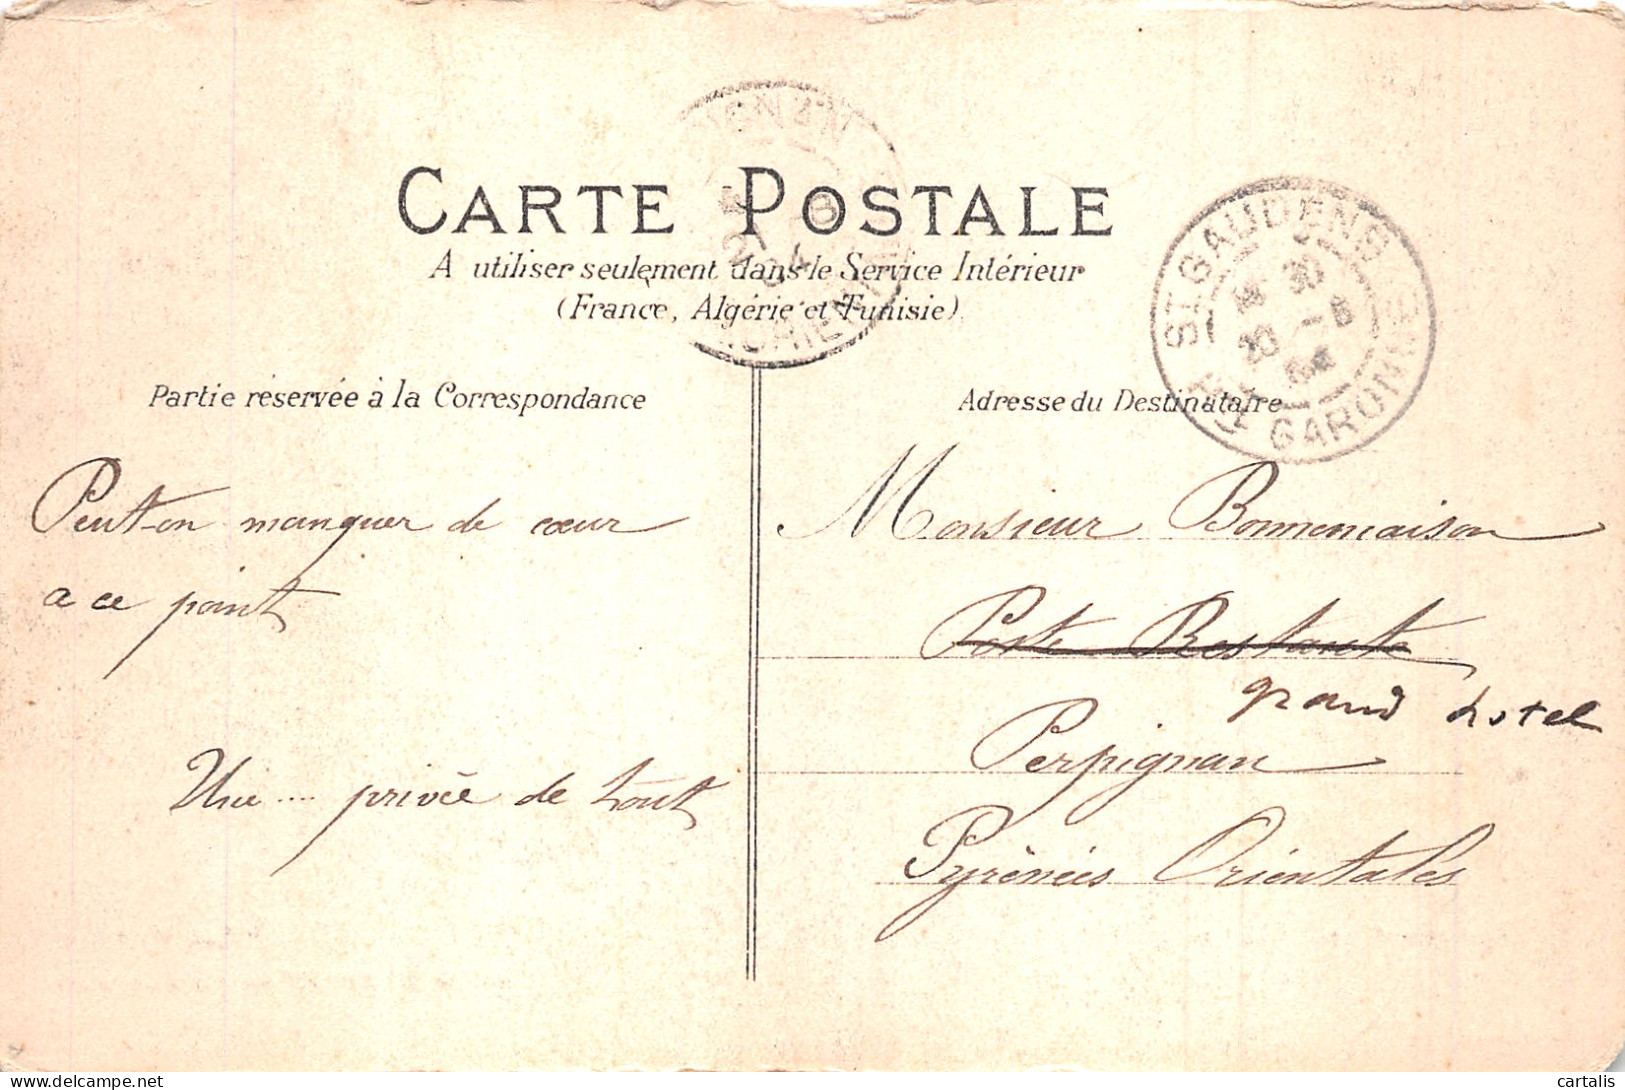 CARTE POSTALE
A utiliser seulement dans le Service Intérieur
(France, Algérie et Tunisie)
Partie réservée à la Correspondance
Peut-on manquer de cœur
a ce point
Une .... privée de tout
ST GAUDENS
HTE GARONNE
Adresse du Destinataire
Monsieur Bonnemaison
Poste Restante
grand hotel
Perpignan
Pyrénées Orientales
delcampe.net
cartalis